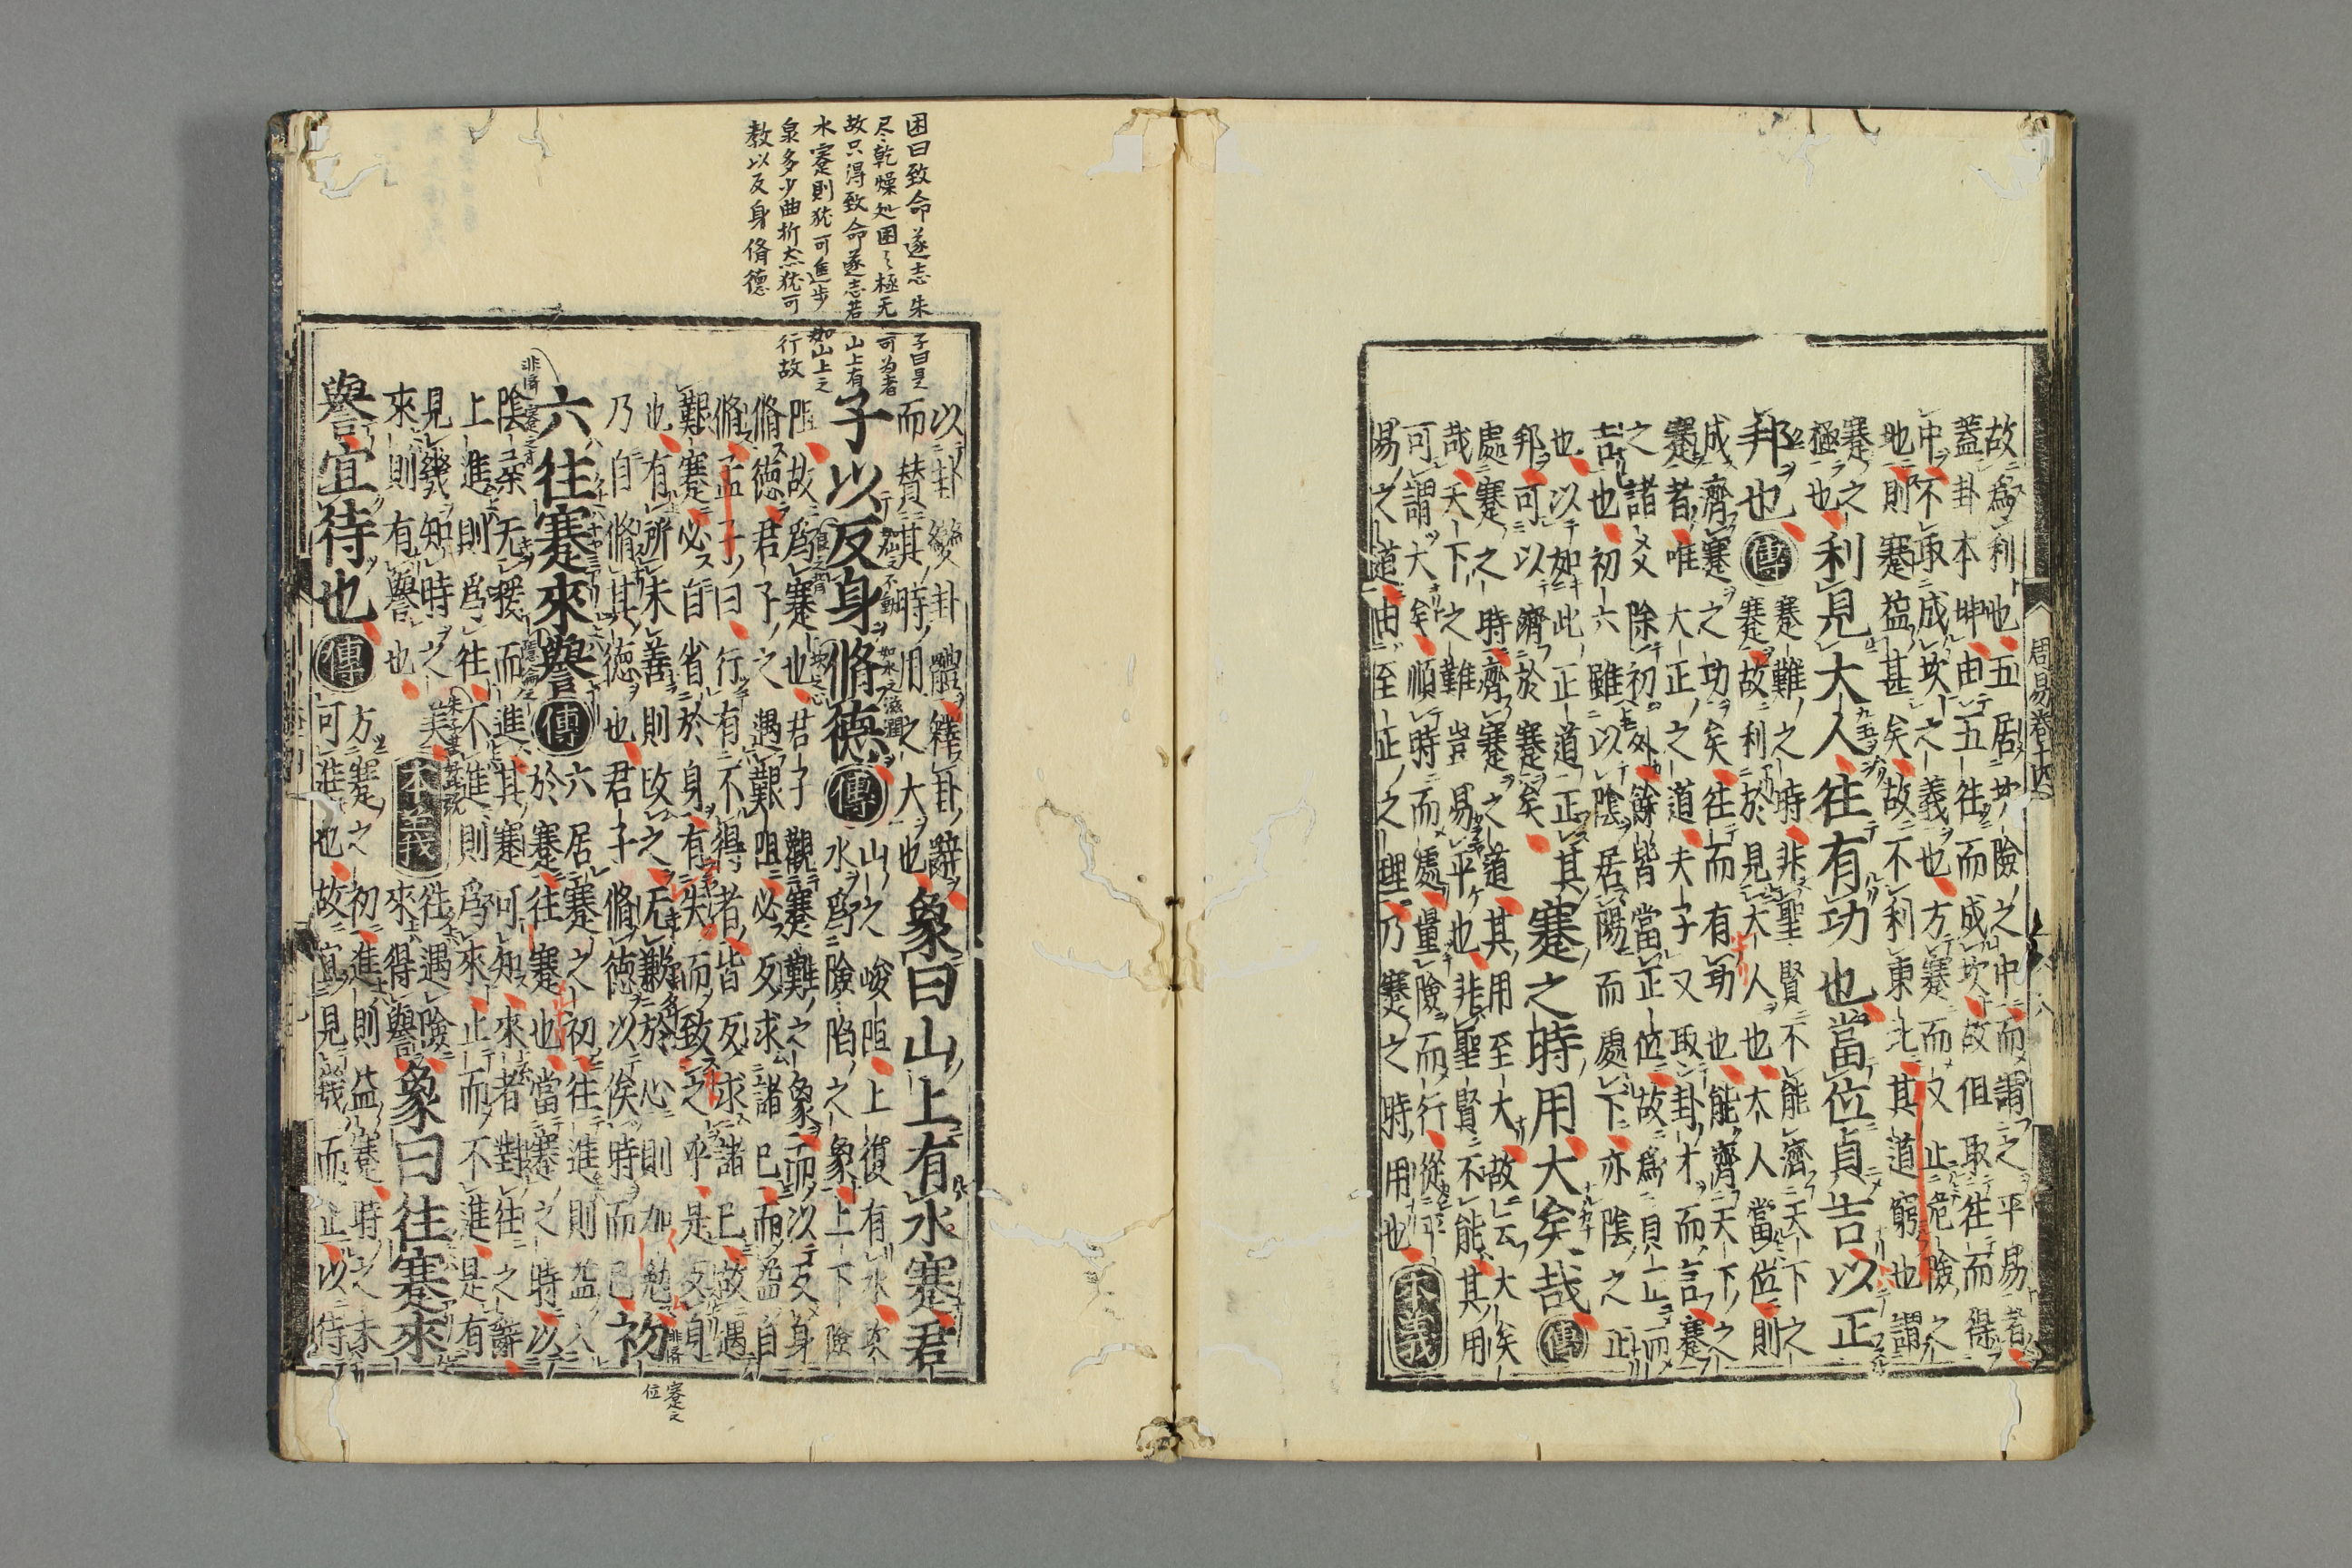 周易卷十四
故爲利也五居坎險之中而謂之平易者
蓋卦本坤由五往而成坎故但取往而得
中不取成坎之義也方蹇而又止危險之
地則蹇益甚矣故不利東北其道窮也謂
蹇之
極也利見大人往有功也當位貞吉以正
邦也傳蹇難之時非聖賢不能濟天下之
蹇故利於見大人也大人當位則
成濟蹇之功矣往而有功也能濟天下之
蹇者唯大正之道夫子又取卦才而言蹇
之諸爻除初外餘皆當正位故爲貞正而
吉也初六雖以陰居陽而處下亦陰之正
也以如此正道正其
邦可以濟於蹇矣蹇之時用大矣哉傳
處蹇之時濟蹇之道其用至大故云大矣
哉天下之難豈易平也非聖賢不能其用
可謂大矣順時而處量險而行從平
易之道由至正之理乃蹇之時用也本義
困曰致命遂志朱子曰是
尽乾燥処困之極无可为者
故只得致命遂志若山上有
水蹇則犹可進步如山上之
泉多少曲折亦犹可行故
教以反身脩德
以卦變卦體釋卦辭
而贊其時用之大也象曰山上有水蹇君
子以反身脩德傳山之峻阻上復有水坎
水爲險陷之象上下險
阻故爲蹇也君子觀蹇難之象而以反身
脩德君子之遇艱阻必反求諸己而益自
脩孟子曰行有不得者皆反求諸己故遇
艱蹇必自省於身有失而致之乎是反身
也有所未善則改之无歉於心則加勉
乃自脩其德也君子脩德以俟時而已初
六往蹇來譽傳六居蹇之初往進則益入
於蹇往蹇也當蹇之時以
陰柔无援而進其蹇可知來者對往之辭
上進則爲往不進則爲來止而不進是有
見幾知時之美
來則有譽也本義往遇險
來得譽象曰往蹇來
譽宜待也傳方蹇之初進則益蹇時之未
可進也故宜見幾而止以待